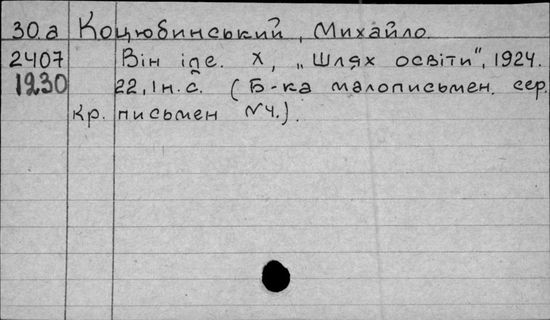 30.а Коцюбинський, Михайло
2407 Він іде. Х, „Шлях освіти", 1924.
1230 22, 1н.с. (Б-ка малописьмен. сер.
кр. письмен №4.).